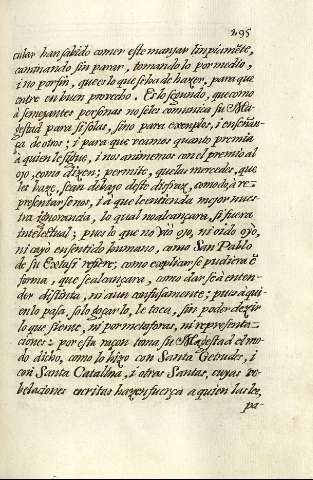 295
cular han sabido comer este manjar limpiamẽte,
caminando sin parar, tomando lo por medio,
i no por fin, que es lo que se ha de hazer, para que
entre en buen provecho. Es lo segundo, que como
à semejantes personas no se les comunica su Ma-
gestad para sí solas, sino para exemplos, i enseñan-
za de otros; i para que veamos quanto premia
à quien le sigue, i nos animemos con el premio al
ojo, como dizen; permite, que las mercedes, que
les haze, sean debajo deste disfraz, acomodãdo à re-
presentarsenos, i à que le entienda mejor nues-
tra ignorancia, lo qual no alcançara, si fuera
intelectual; pues lo que no vió ojo, ni oido oyò,
ni cayò en sentido humano, como San Pablo
de su Extasi refiere; como explicar se pudiera ẽ
forma, que se alcançara, como dar se à enten-
der distinta, ni aun confusamente; pues à qui-
en lo pasa, solo gozarlo, le toca, sin poder dezir
lo que siente, ni por metaforas, ni representa-
ciones: por esta raçon toma su Magestad el mo-
do dicho, como lo hizo con Santa Getrudes, i
con Santa Catalina, i otras Santas, cuyas re-
belaciones escritas hazen fuerça à quien las lee,
pa-